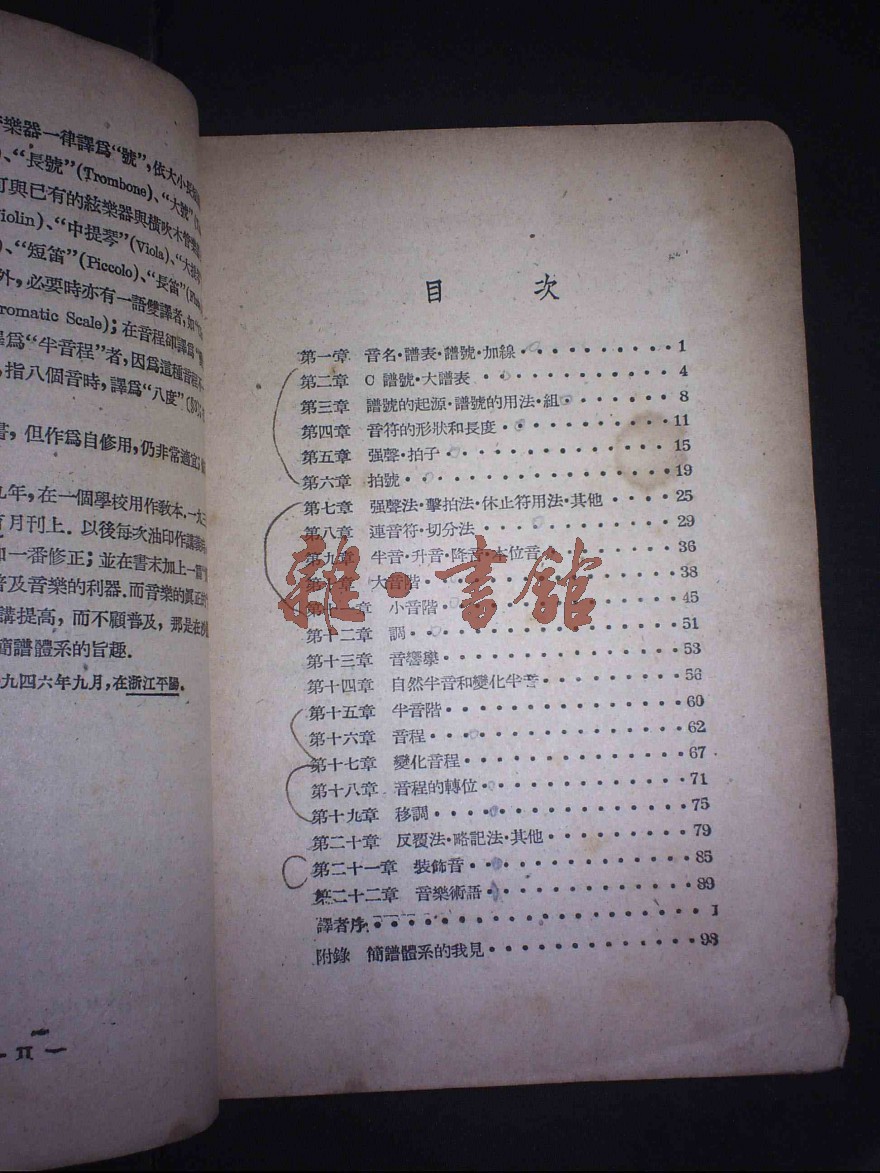 樂器一律譯爲“號”，依大小長短
、“長號”(Trombone)、“大號”
可與已有的絃樂器與橫吹木管樂器
iolin)、“中提琴”(Viola)、“大提琴
)、“短笛”(Piccolo)、“長笛”
外，必要時亦有一語雙譯者，如
romatic Scale)；在音程師譯爲
爲“半音程”者，因爲這種音程
，指八個音時，譯爲“八度”
書，但作爲自修用，仍非常適宜
九年，在一個學校用作敎本．一九三
月刊上．以後每次油印作講義
一番修正；並在書末加上一篇
普及音樂的利器．而音樂的眞正
講提高，而不顧普及，那是在
簡譜體系的旨趣．
九四六年九月，在浙江平陽．
— II —
目 次
第一章 音名·譜表·譜號·加線·········1
第二章 C 譜號·大譜表·········4
第三章 譜號的起源·譜號的用法·組·········8
第四章 音符的形狀和長度·········11
第五章 强聲·拍子·········15
第六章 拍號·········19
第七章 强聲法·擊拍法·休止符用法·其他·········25
第八章 連音符·切分法·········29
第九章 半音·升音·降音·本位音·········36
第十章 大音階·········38
第十一章 小音階·········45
第十二章 調·········51
第十三章 音響學·········53
第十四章 自然半音和變化半音·········56
第十五章 半音階·········60
第十六章 音程·········62
第十七章 變化音程·········67
第十八章 音程的轉位·········71
第十九章 移調·········75
第二十章 反覆法·略記法·其他·········79
第二十一章 裝飾音·········85
第二十二章 音樂術語·········89
譯者序·········I
附錄 簡譜體系的我見·········98
雜·書館